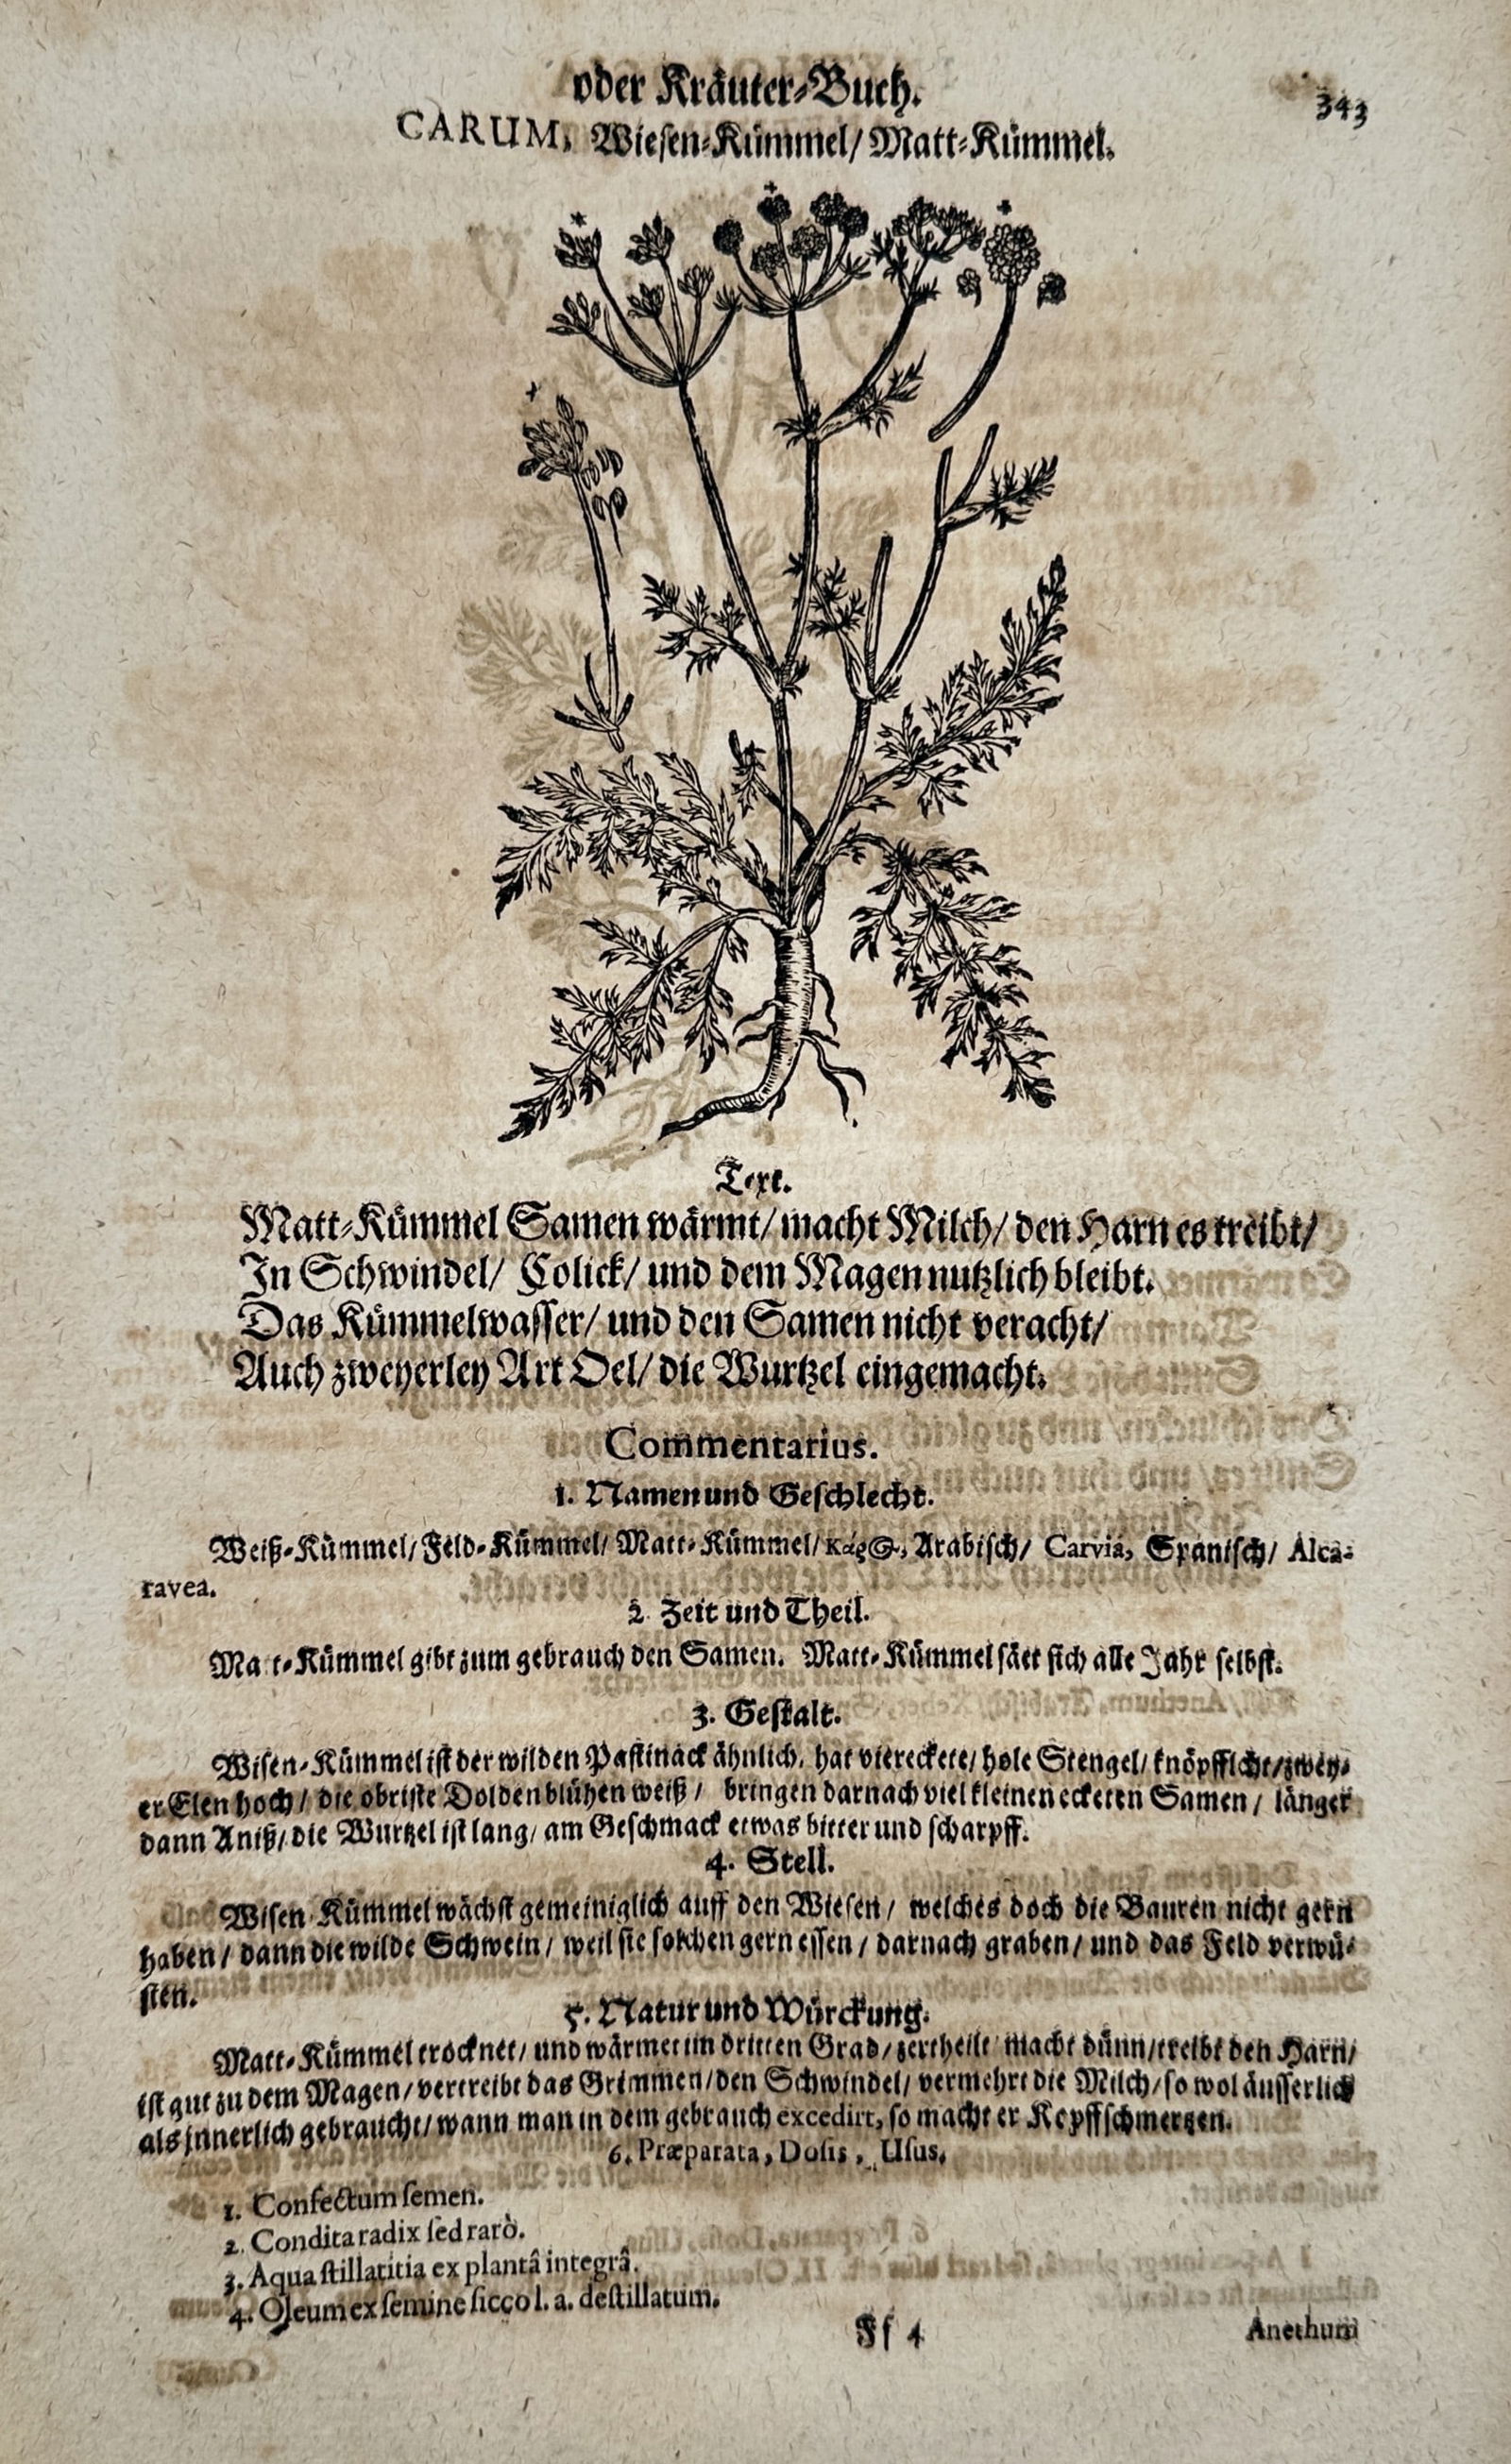 oder Kräuter-Buch.
343
CARUM, Wiesen-Kümmel/ Matt-Kümmel.
Text.
Matt-Kümmel Samen wärmt/ macht Milch/ den Harn es treibt/
In Schwindel/ Colick/ und dem Magen nutzlich bleibt.
Das Kümmelwasser/ und den Samen nicht veracht/
Auch zweyerley Art Oel/ die Wurtzel eingemacht.
Commentarius.
1. Namen und Geschlecht.
Weiß-Kümmel/ Feld-Kümmel/ Matt-Kümmel/ Arabisch/ Carvia, Spanisch/ Alca-
ravea.
2. Zeit und Theil.
Matt-Kümmel gibt zum gebrauch den Samen. Matt-Kümmel säet sich alle Jahr selbst.
3. Gestalt.
Wisen-Kümmel ist der wilden Pastinack ähnlich, hat viereckete/ hole Stengel/ knöpfflcht/ zwey-
er Elen hoch/ die obriste Dolden blühen weiß/ bringen darnach viel kleinen ecketen Samen/ länger
dann Aniß/ die Wurtzel ist lang/ am Geschmack etwas bitter und scharpff.
4. Stell.
Wisen Kümmel wächst gemeiniglich auff den Wiesen/ welches doch die Bauren nicht gern
haben/ dann die wilde Schwein/ weil sie solchen gern essen/ darnach graben/ und das Feld verwü-
sten.
5. Natur und Würckung.
Matt-Kümmel trocknet/ und wärmet im dritten Grad/ zertheilt macht dünn/ treibt den Harn/
ist gut zu dem Magen/ vertreibt das Grimmen/ den Schwindel/ vermehrt die Milch/ so wol äusserlich
als jnnerlich gebraucht/ wann man in dem gebrauch excedirt, so macht er Kopffschmertzen.
6. Præparata, Dosis, Usus.
1. Confectum semen.
2. Condita radix sed rarò.
3. Aqua stillatitia ex plantâ integrâ.
4. Oleum ex semine sicco l. a. destillatum.
Ff 4
Anethum